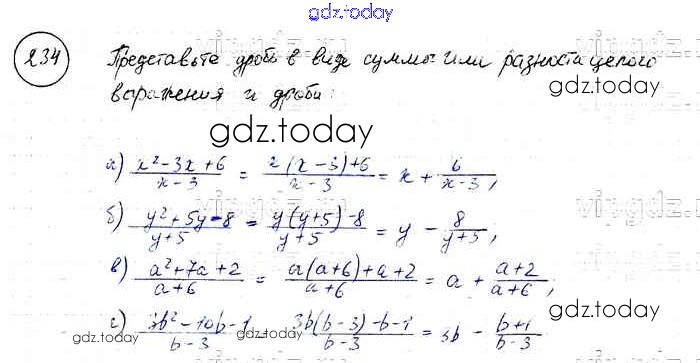 gdz.today
234 Представьте дроби в виде суммы или разности целого
выражения и дроби:
gdz.today
а) (x² - 3x + 6)/(x - 3) = (2(x - 3) + 6)/(x - 3) = x + 6/(x - 3),
б) (y² + 5y - 8)/(y + 5) = (y(y + 5) - 8)/(y + 5) = y - 8/(y + 5);
в) (a² + 7a + 2)/(a + 6) = (a(a + 6) + a + 2)/(a + 6) = a + (a + 2)/(a + 6);
г) (3b² - 10b - 1)/(b - 3) = (3b(b - 3) - b - 1)/(b - 3) = 3b - (b + 1)/(b - 3)
gdz.today
gdz.today